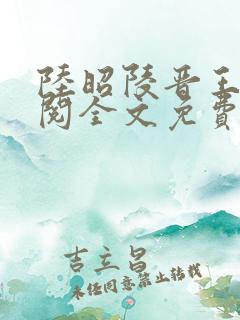 陸昭陵晋王
閱全文免費
吉立昌
未经同意禁止转载